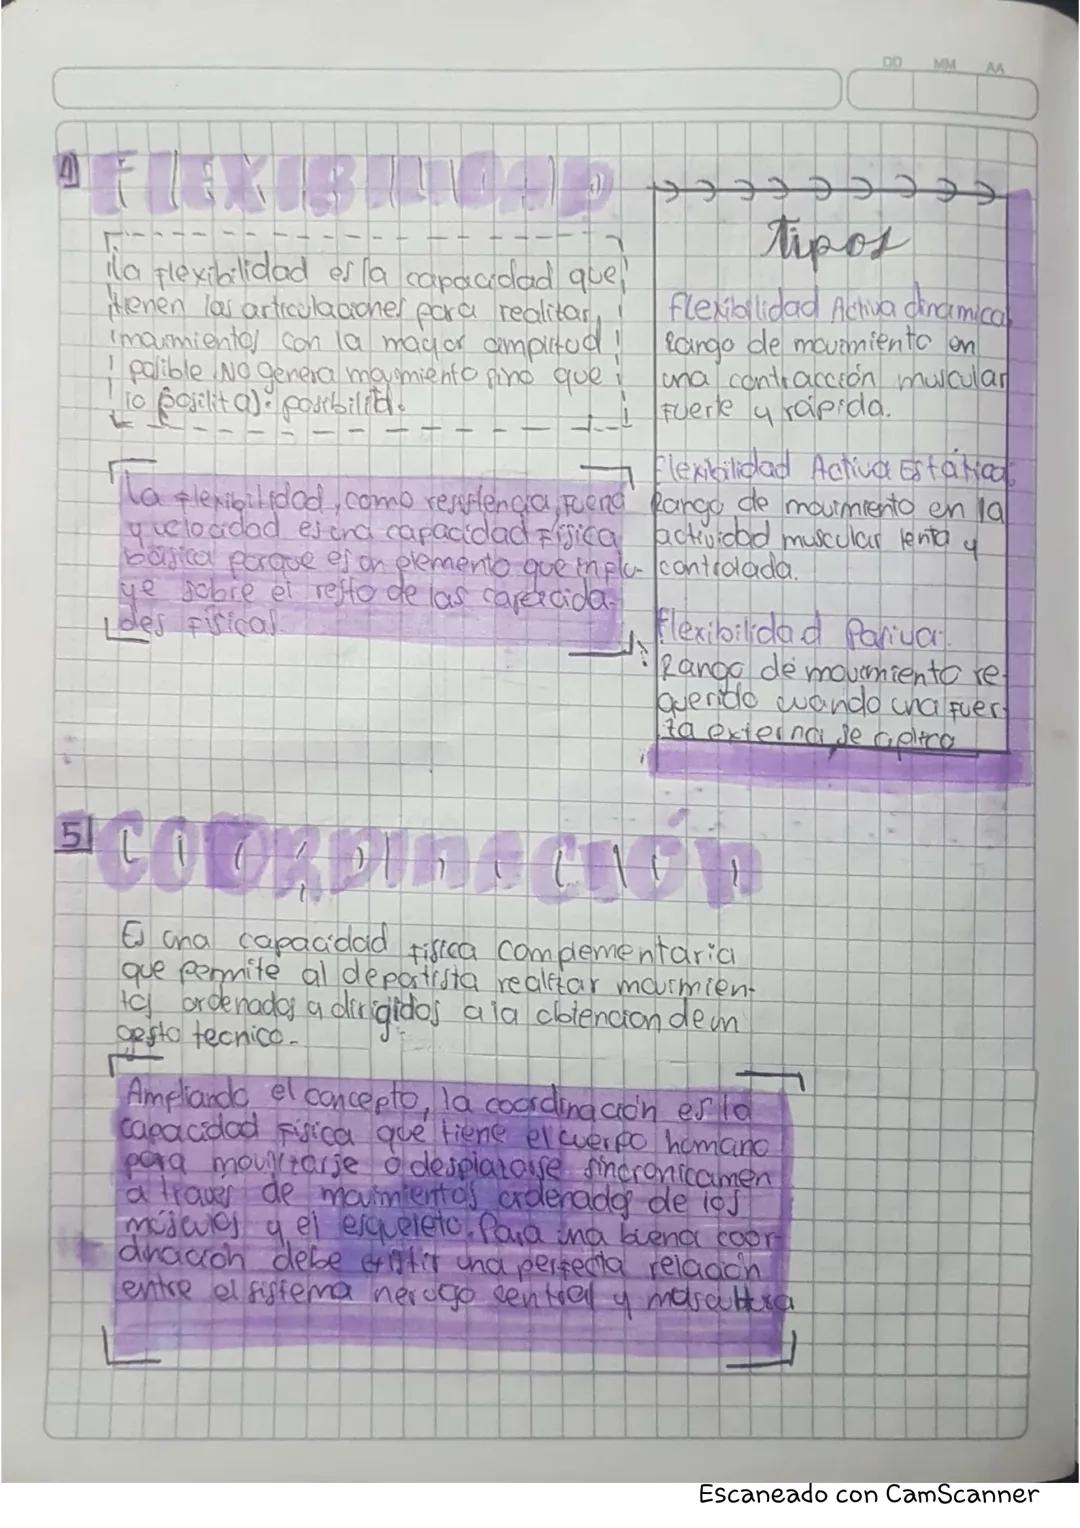 DD MM AA
4 FlEXIBILIDAD
la flexibilidad es la capacidad que
tienen las articulaciones para realitar
movimientos con la mayor amplitud
posible. No genera movimiento sino que
lo posilita). posibilita.
La flexibilidad, como resistencia, Fuerza
y velocidad es una capacidad Física
básica porque es un elemento que inplu-
ye sobre el resto de las capercida-
des Físicas.
Tipos
Flexibilidad Activa dinamica
Rango de movimiento en
una contracción muscular
Fuerte y rápida.
Flexibilidad Activa Estática:
Rango de movimiento en la
actividad muscular lenta y
controlada.
Flexibilidad Pasiva:
Rango de movimiento re-
querido cuando una Fuer-
za externa se aplica
5 COORDINACIÓN
Es una capacidad Física complementaria
que permite al deportista realizar movimien-
tos ordenados y dirigidos a la obtencion de un
gesto tecnico.
Ampliando el concepto, la coordinación es la
capacidad Física que tiene el cuerpo humano
para movilizarse o desplazarse sincronicamen
a traves de movimientos ordenados de los
músculos y el esqueleto. Para una buena coor-
dinación debe existir una perfecta relación
entre el sistema nervoso central y
Escaneado con CamScanner